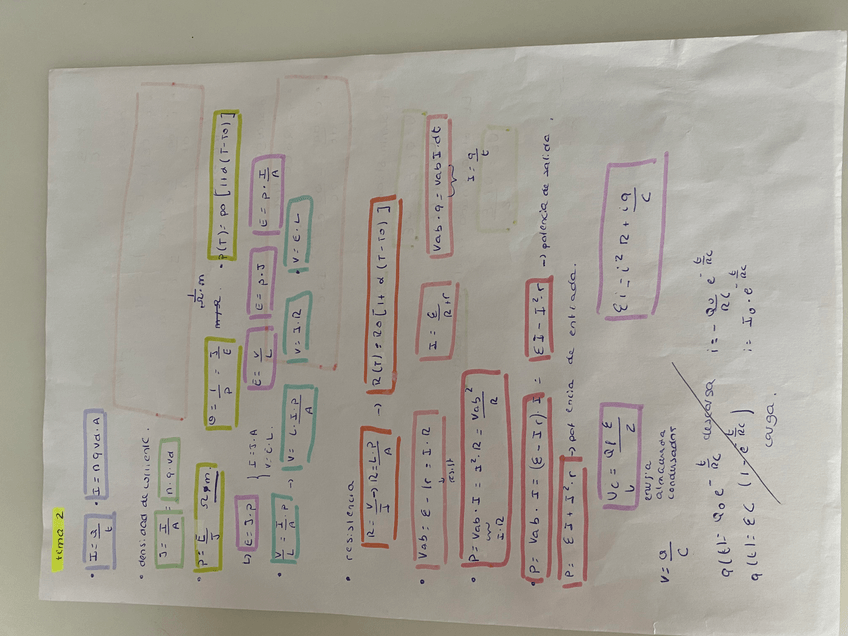 tema 2
• I = Q/t • I = n·q·vd·A
• densidad de corriente.
J = I/A = n·q·vd
• ρ = E/J Ω·m. σ = 1/ρ = J/E 1/Ω·m • ρ(T) = ρ0 [1+α(T-T0)]
↳ E = J·ρ } J = J·A V = E·L. E = V/L E = ρ·J E = ρ·I/A
• V/L = I/A·ρ → V = L·I·ρ/A V = I·R • V = E·L
• resistencia
R = V/I → R = L·ρ/A → R(T) = R0 [1+α(T-T0)]
• Vab = ε - Ir = I·R I = ε/R+r Vab·q = Vab I·dt
I = q/t
• P = Vab·I = I²·R = Vab²/R
I·R
• P = Vab·I = (ε - Ir)·I = εI - I²·r → potencia de salida.
P = εI + I²·r → potencia de entrada.
Uc = Qf ε/2 εi = i²R + iq/C
↳ energía
almacenada
condensador
V = Q/C
q(t) = Q0 e^-t/RC descarga i = -Q0/RC e^-t/RC
q(t) = εC (1-e^-t/RC) carga. i = I0·e^-t/RC